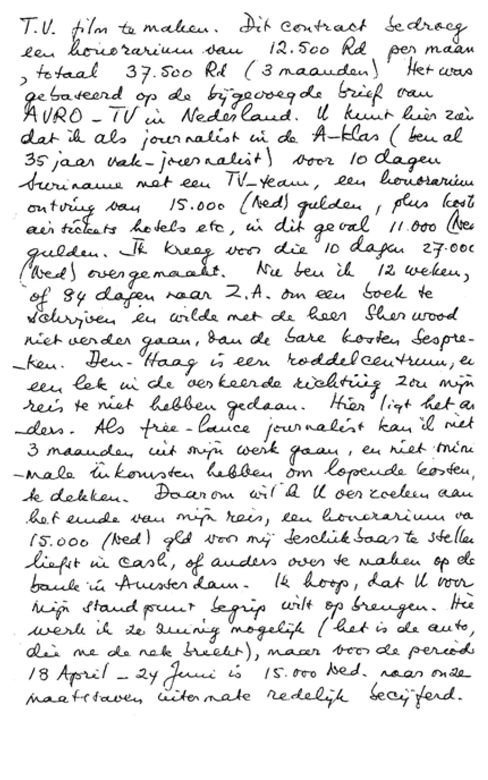 T.V. film te maken. Dit contract bedroeg
een honorarium van 12.500 Rd per maan
, totaal 37.500 Rd (3 maanden) Het was
gebaseerd op de bijgevoegde brief van
AVRO-TV in Nederland. U kunt hier zien
dat ik als journalist in de A-klas (ben al
35 jaar vak-journalist) voor 10 dagen
Suriname met een TV-team, een honorarium
ontving van 15.000 (Ned) gulden, plus kost
air tickets hotels etc, in dit geval 11.000 (Ne
gulden. Ik kreeg voor die 10 dagen 27.000
(Ned) overgemaakt. Nu ben ik 12 weken,
of 84 dagen naar Z.A. om een boek te
schrijven en wilde met de heer Sherwood
niet verder gaan, dan de bare kosten bespre-
-ken. Den-Haag is een roddelcentrum, e
een lek in de verkeerde richting zou mijn
reis te niet hebben gedaan. Hier ligt het an
-ders. Als free-lance journalist kan ik niet
3 maanden uit mijn werk gaan, en niet mini
-male inkomsten hebben om lopende kosten,
te dekken. Daarom wil ik U verzoeken aan
het einde van mijn reis, een honorarium va
15.000 (Ned) gld voor mij beschikbaar te stelle
liefst in cash, of anders over te maken op de
bank in Amsterdam. Ik hoop, dat U voor
mijn standpunt begrip wilt opbrengen. Hie
werk ik zo zuinig mogelijk (het is de auto,
die me de nek breekt), maar voor de periode
18 April - 24 Juni is 15.000 Ned. naar onze
maatstaven uitermate redelijk becijferd.